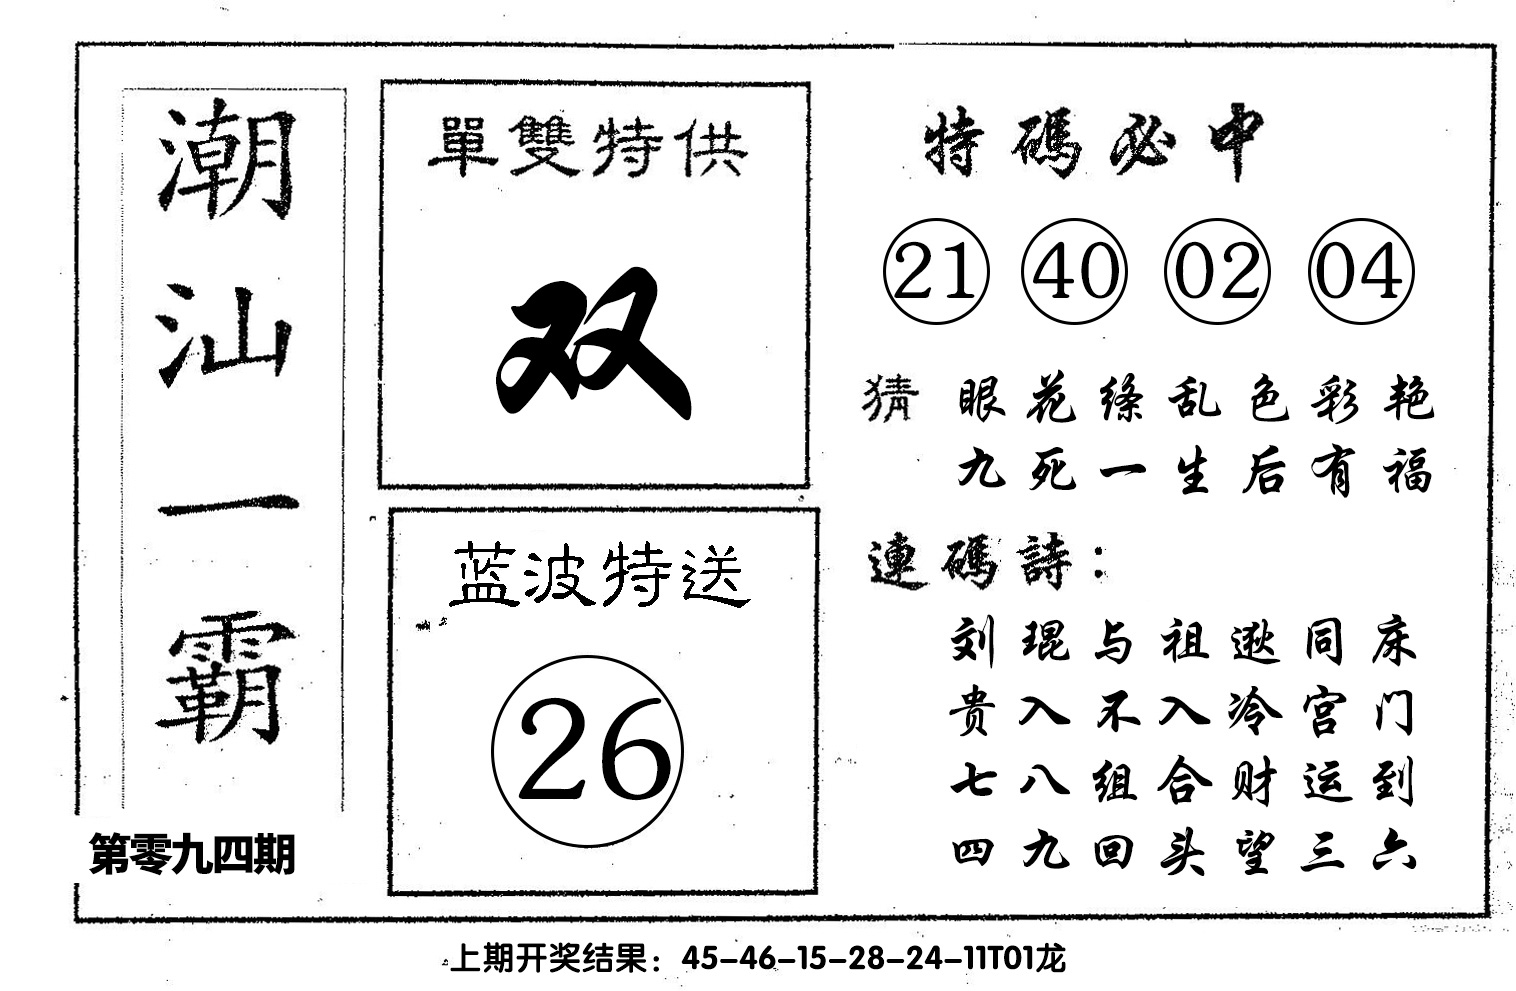 潮汕一霸
第零九四期
單雙特供
双
蓝波特送
26
特碼必中
21 40 02 04
猜 眼花缭乱色彩艳
九死一生后有福
連碼詩：
刘琨与祖逖同床
贵入不入冷宫门
七八组合财运到
四九回头望三六
上期开奖结果：45-46-15-28-24-11T01龙